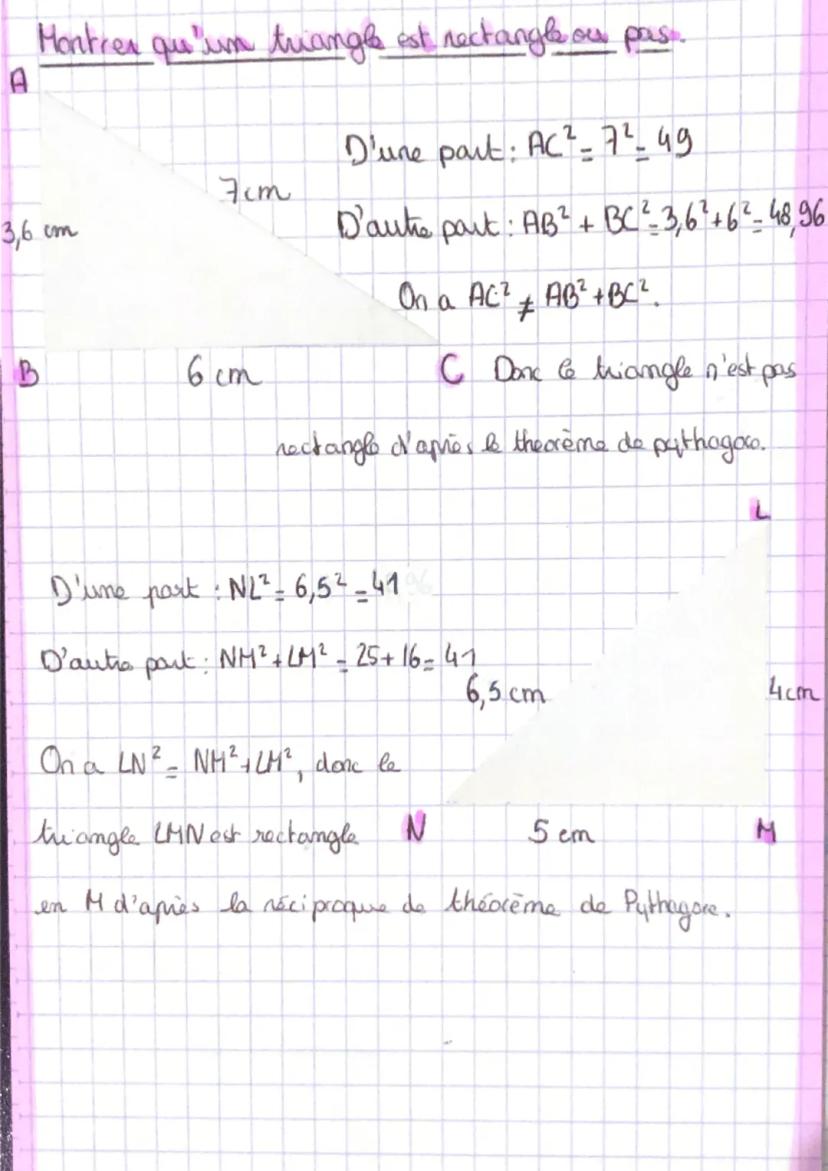 Montrer qu'un triangle est rectangle ou pas.
A
D'une part : AC² = 7² = 49
7cm
3,6 cm
D'autre part : AB² + BC² = 3,6² + 6² = 48,96
On a AC² ≠ AB² + BC².
B 6 cm C Donc le triangle n'est pas
rectangle d'après le theorème de pythagore.
L
D'une part : NL² = 6,5² = 41
D'autre part : NM² + LM² = 25 + 16 = 41
6,5 cm 4cm
On a LN² = NM² + LM², donc le
triangle LMN est rectangle N 5 cm M
en M d'après la réciproque de théorème de Pythagore.